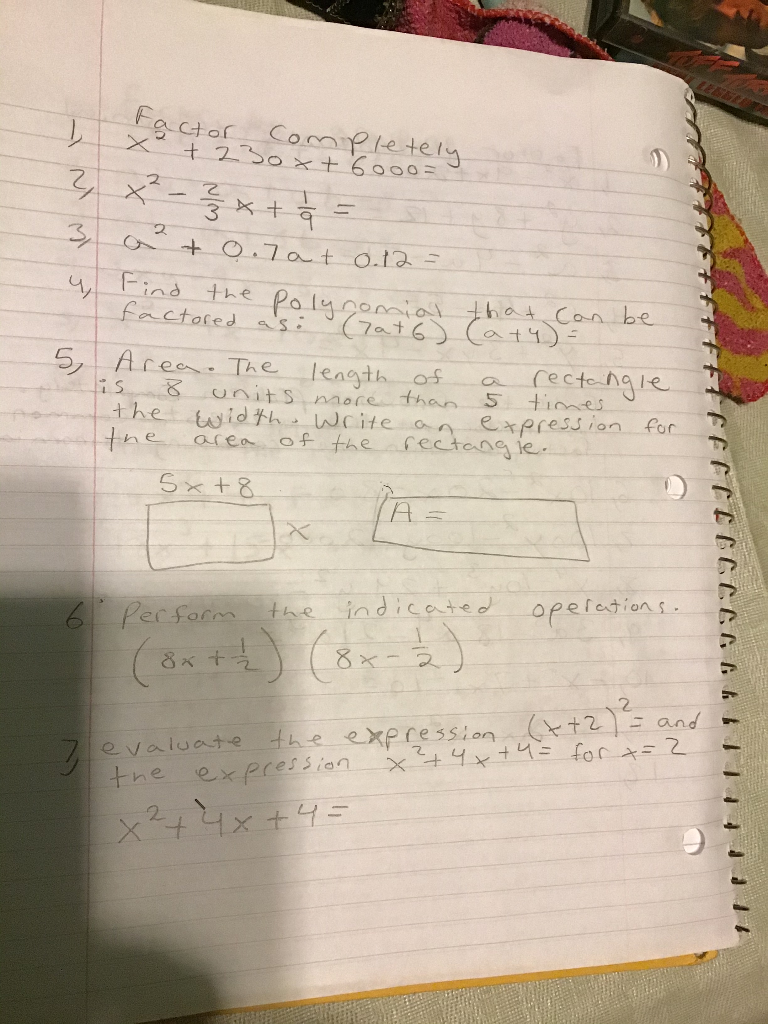 Factor completely
1, x² + 230x + 6000 =
2, x² - 2/3 x + 1/9 =
3, a² + 0.7a + 0.12 =
4, Find the polynomial that can be
factored as: (7a+6) (a+4) =
5, Area. The length of a rectangle
is 8 units more than 5 times
the width. Write an expression for
the area of the rectangle.
5x+8
x A =
6 Perform the indicated operations.
(8x + 1/2) (8x - 1/2)
7, evaluate the expression (x+2)² = and
the expression x²+4x+4= for x=2
x²+4x+4=